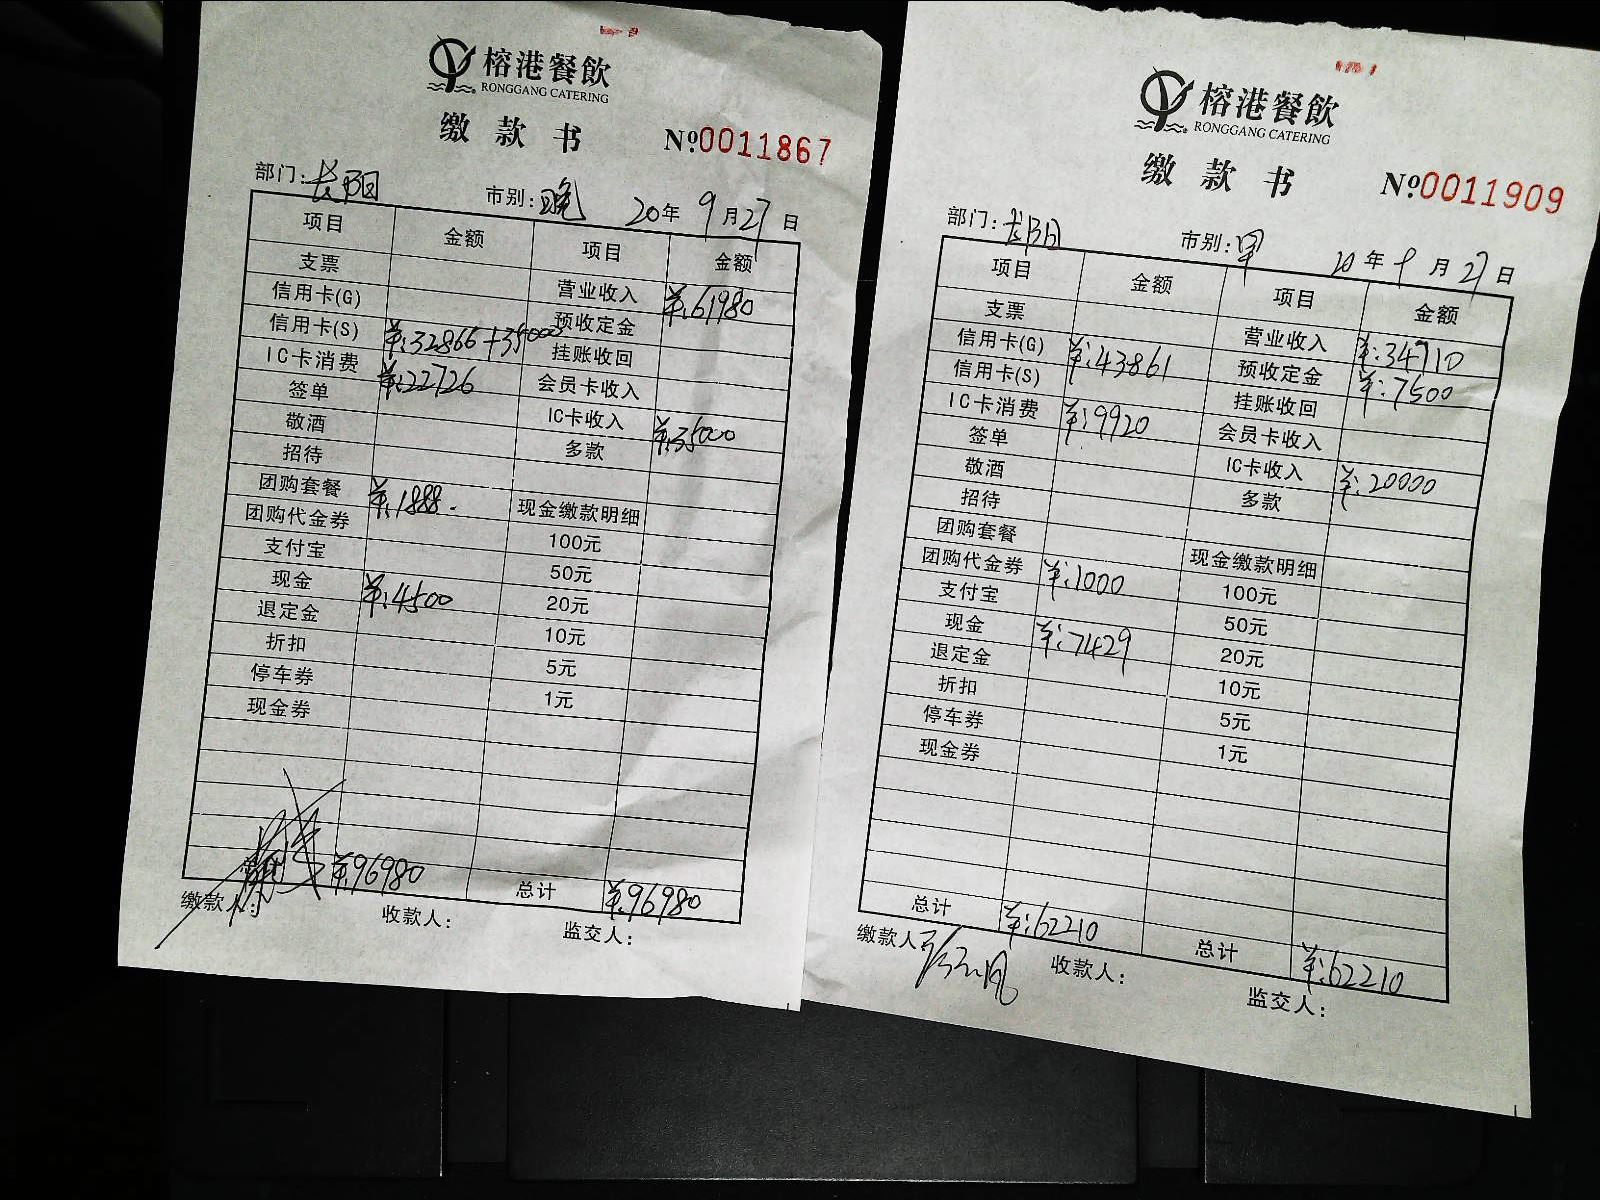 榕港餐飲
RONGGANG CATERING
缴款书 №0011867
部门:长阳 市别:晚 20年9月27日
项目 金额 项目 金额
支票 营业收入 ¥:61980
信用卡(G) 预收定金
信用卡(S) ¥:32866+35000 挂账收回
IC卡消费 ¥:22726 会员卡收入
签单 IC卡收入 ¥:35000
敬酒 多款
招待
团购套餐 ¥:1888. 现金缴款明细
团购代金券 100元
支付宝 50元
现金 ¥:4500 20元
退定金 10元
折扣 5元
停车券 1元
现金券
¥:96980 总计 ¥:96980
缴款人: 收款人: 监交人:
榕港餐飲
RONGGANG CATERING
缴款书 №0011909
部门:长阳 市别:早 20年9月27日
项目 金额 项目 金额
支票 营业收入 ¥:34710
信用卡(G) ¥:43861 预收定金 ¥:7500
信用卡(S) 挂账收回
IC卡消费 ¥:9920 会员卡收入
签单 IC卡收入 ¥:20000
敬酒 多款
招待
团购套餐 现金缴款明细
团购代金券 ¥:1000 100元
支付宝 50元
现金 ¥:7429 20元
退定金 10元
折扣 5元
停车券 1元
现金券
总计 ¥:62210 总计 ¥:62210
缴款人 收款人: 监交人: